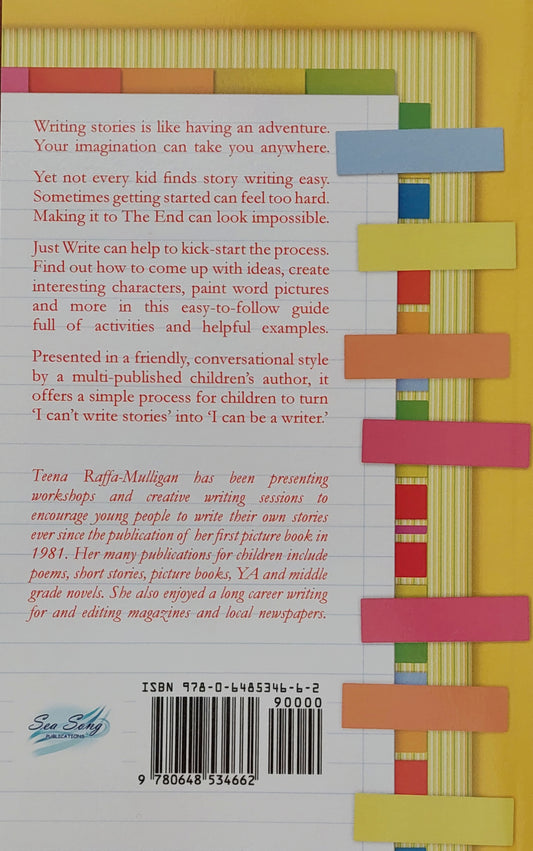 Writing stories is like having an adventure.
Your imagination can take you anywhere.
Yet not every kid finds story writing easy.
Sometimes getting started can feel too hard.
Making it to The End can look impossible.
Just Write can help to kick-start the process.
Find out how to come up with ideas, create
interesting characters, paint word pictures
and more in this easy-to-follow guide
full of activities and helpful examples.
Presented in a friendly, conversational style
by a multi-published children's author, it
offers a simple process for children to turn
'I can't write stories' into 'I can be a writer.'
Teena Raffa-Mulligan has been presenting
workshops and creative writing sessions to
encourage young people to write their own stories
ever since the publication of her first picture book in
1981. Her many publications for children include
poems, short stories, picture books, YA and middle
grade novels. She also enjoyed a long career writing
for and editing magazines and local newspapers.
Sea Song
PUBLICATIONS
ISBN 978-0-6485346-6-2
90000
9 780648 534662